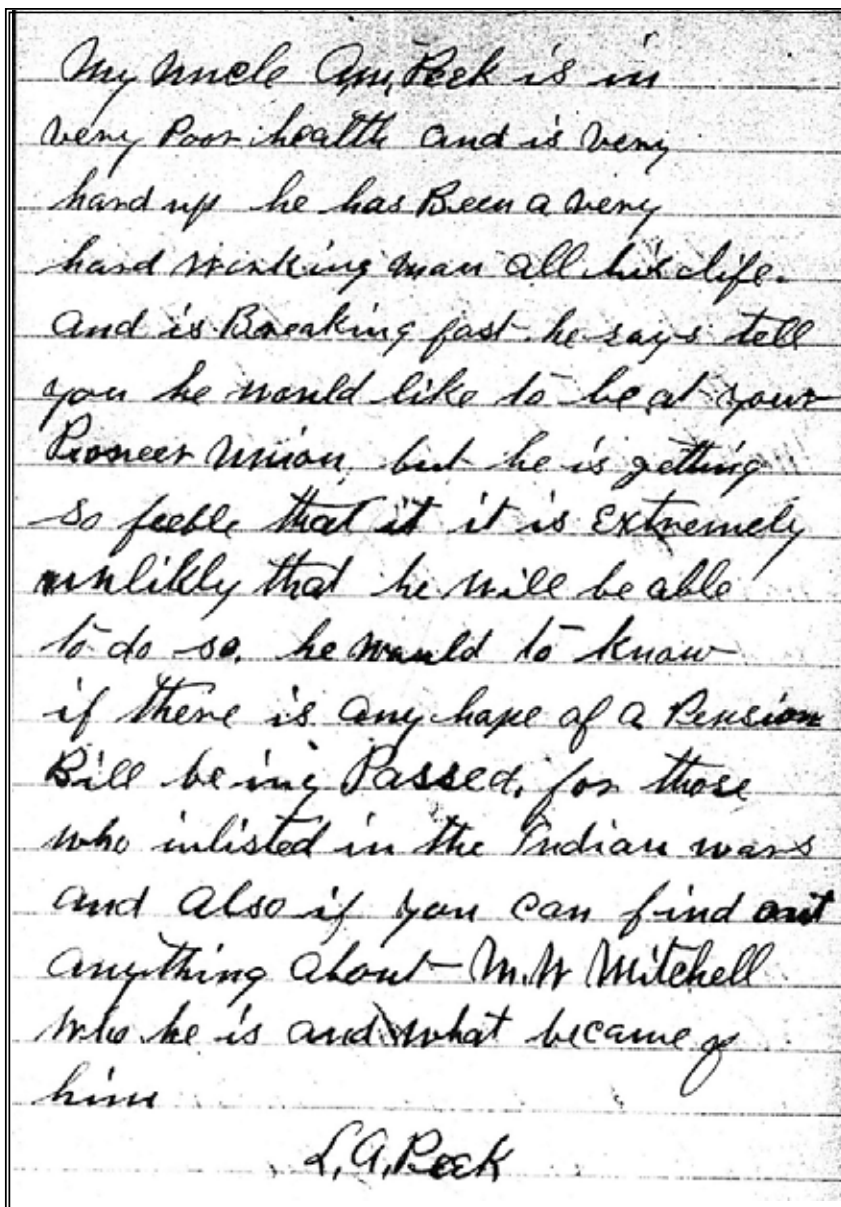 My uncle A,M, Peek is in
very Poor health and is very
hard up he has Been a very
hard working man all his life.
and is Breaking fast he says tell
you he would like to be at your
Pioneer Union, but he is getting
so feeble that it it is Extremely
unlikly that he will be able
to do so. he would to know
if there is any hope of a Pension
Bill being Passed, for those
who inlisted in the Indian wars
and also if you can find out
anything about M.W Mitchell
who he is and what became of
him
L, A, Peek